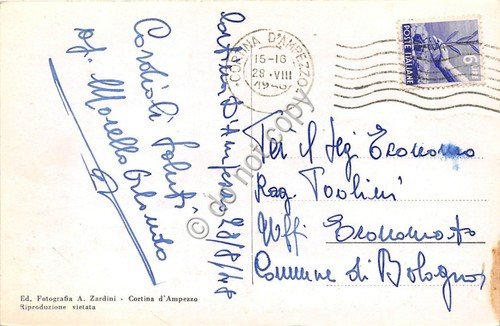 Cortina D'Ampezzo 28/8/48
Cordiali Saluti
Morello
CORTINA D'AMPEZZO
15-16
28·VIII
POSTE ITALIANE
6
Per il Seg Economo
Rag. Paolini
Uffi Economato
Comune di Bologna
Ed. Fotografia A. Zardini - Cortina d'Ampezzo
Riproduzione vietata
do not copy